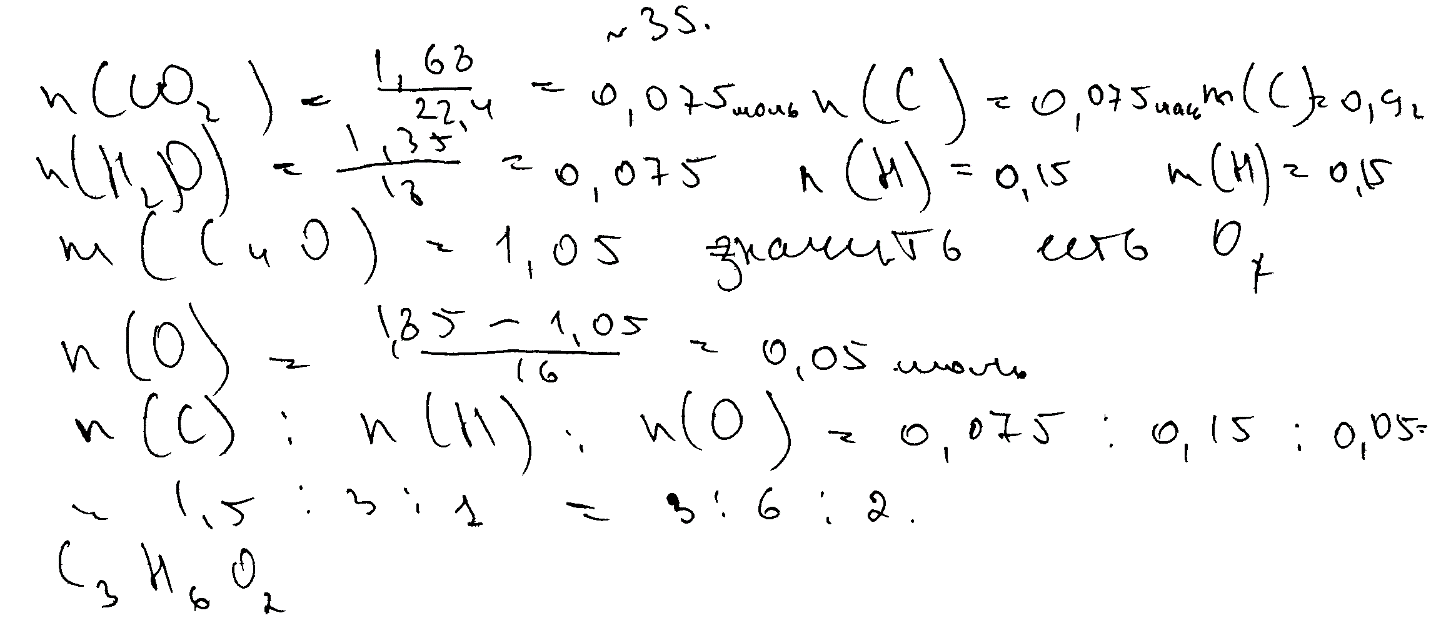 ~ 35.
n(CO₂) = 1,68/22,4 = 0,075 моль n(C) = 0,075 моль m(C) = 0,9г
n(H₂O) = 1,35/18 = 0,075 n(H) = 0,15 m(H) = 0,15
m(C и O) = 1,05 значить есть Oₓ
n(O) = 1,85 - 1,05/16 = 0,05 моль
n(C) : n(H) : n(O) = 0,075 : 0,15 : 0,05 =
= 1,5 : 3 : 1 = 3 : 6 : 2.
C₃H₆O₂